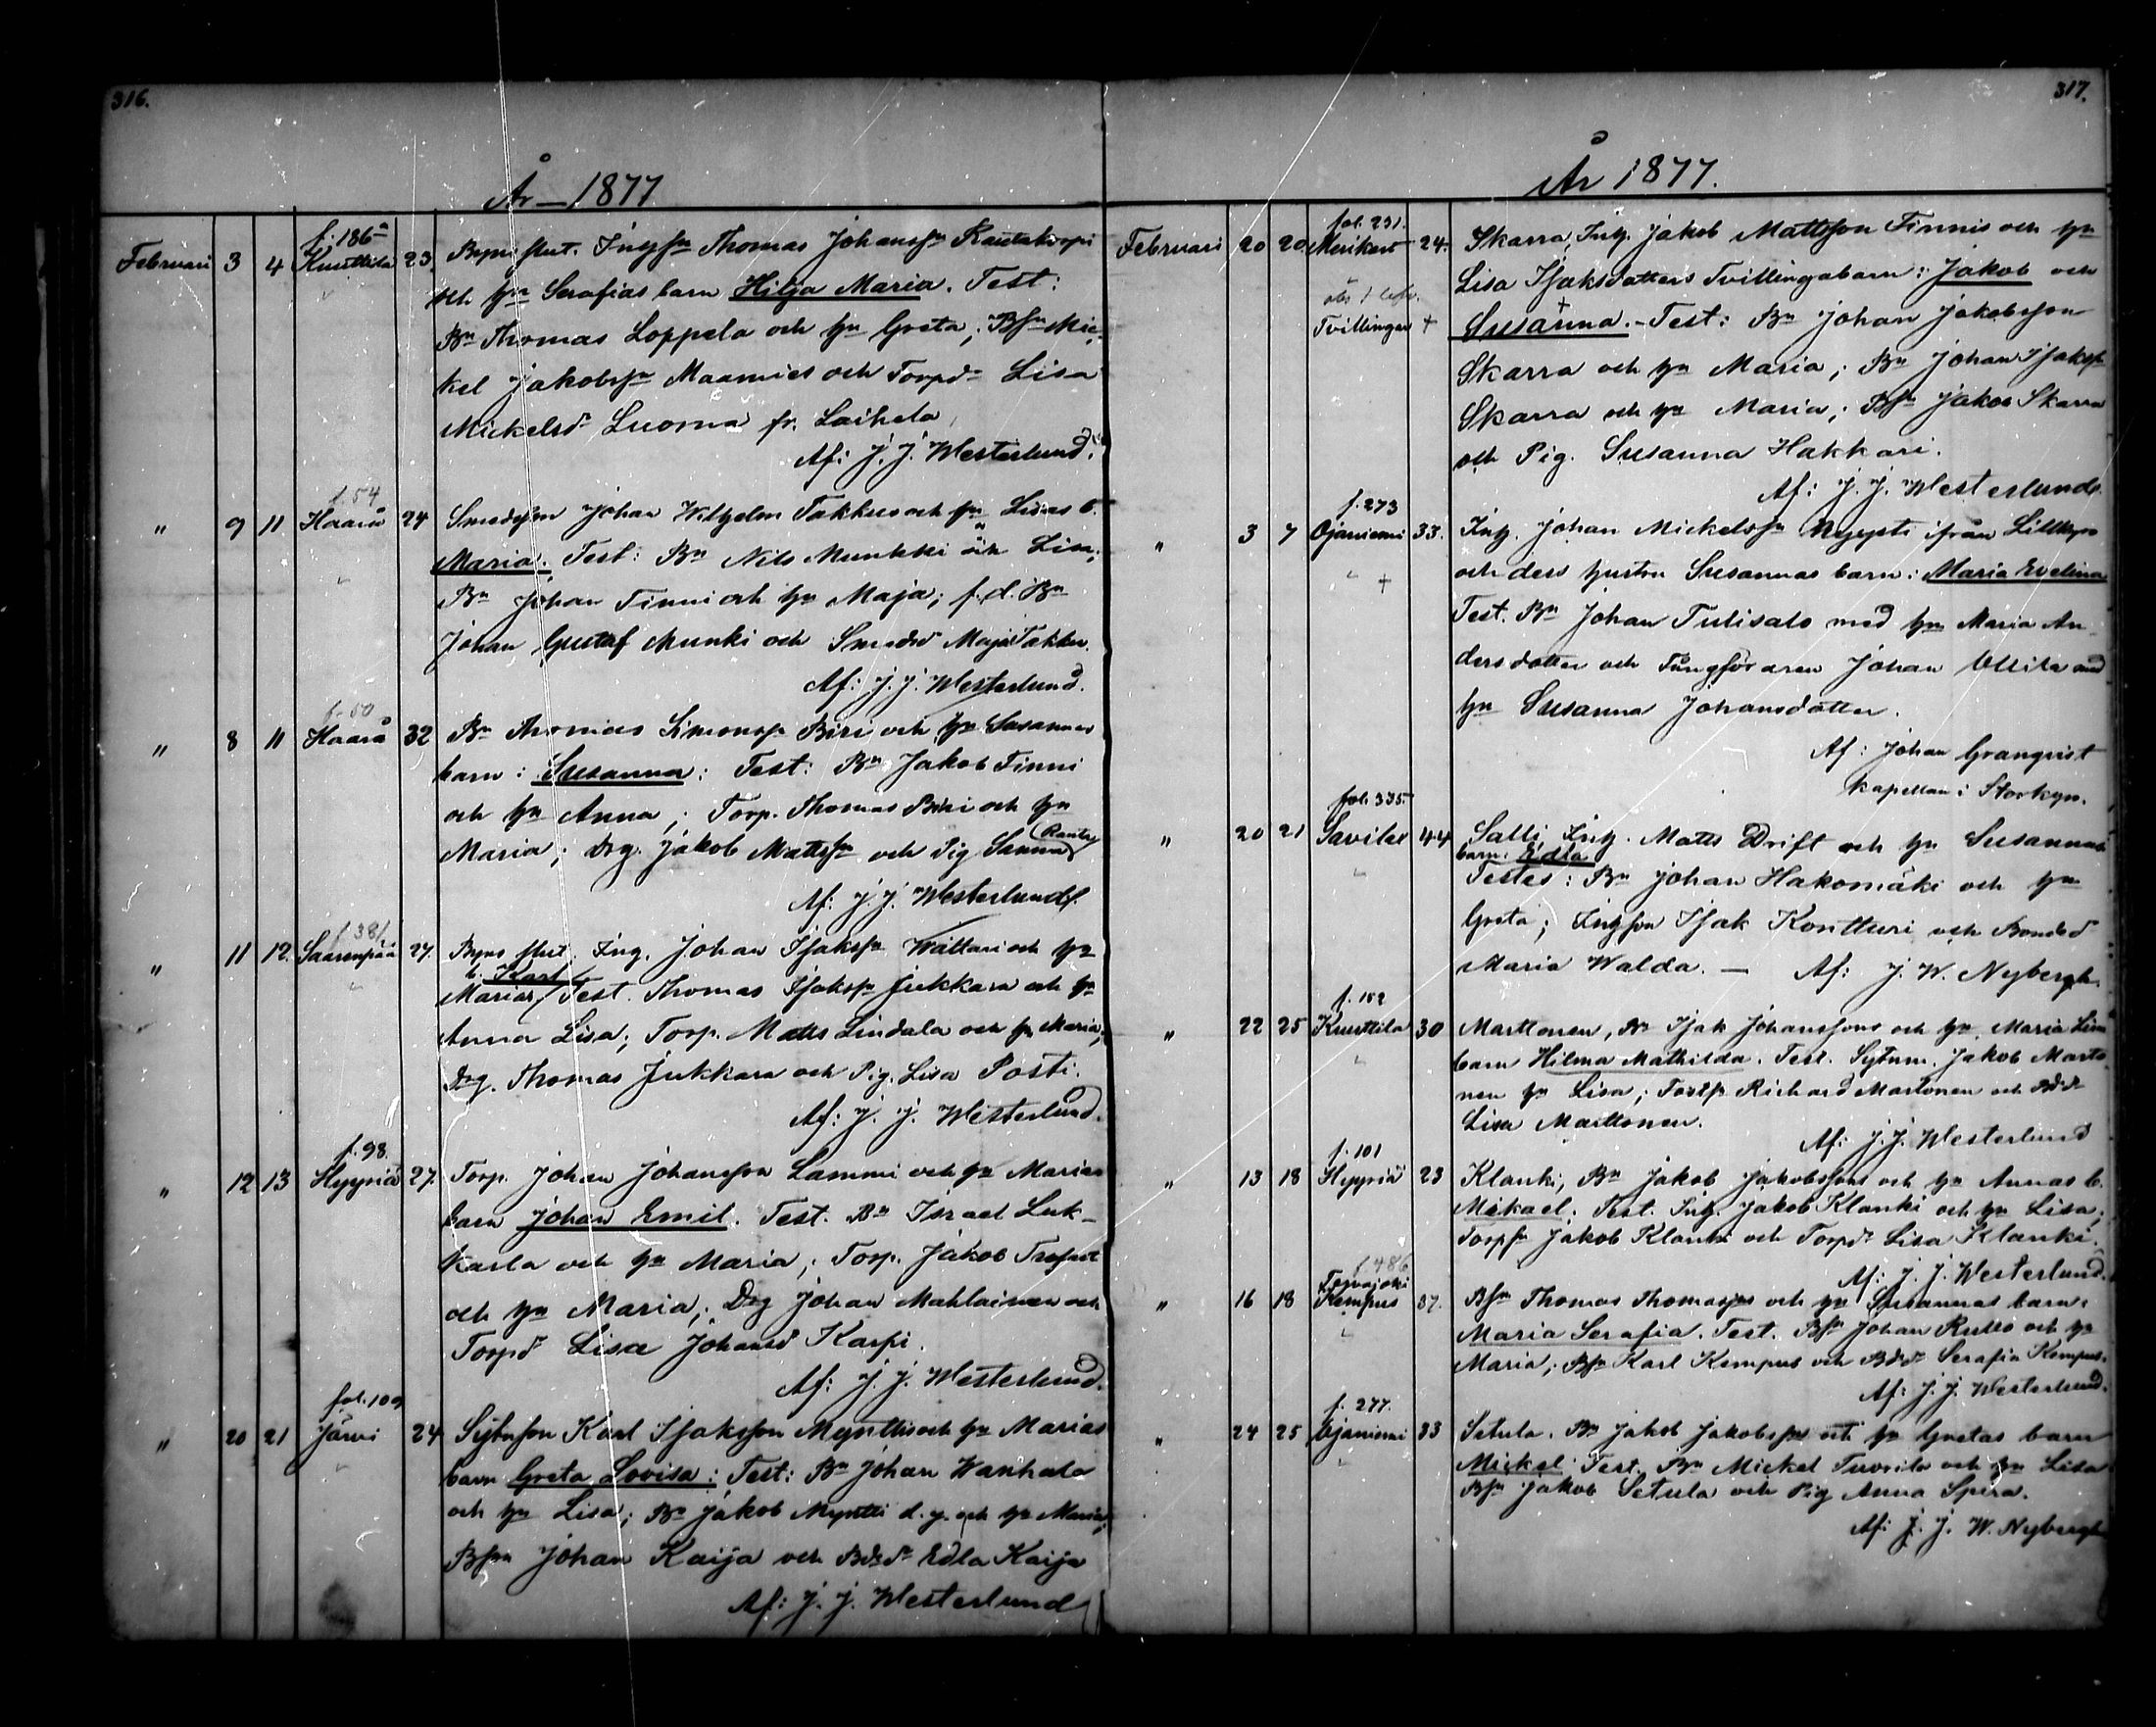 316.
År — 1877
f. 186a
Februari 3 4 Knuuttila 23. Byns slut. Inhysn Thomas Johanssn Rautakorpi
och hn Serafias barn Hilja Maria. Test:
Bn Thomas Loppela och hn Greta; Bsn Mic-
kel Jakobssn Maamies och Torpdr Lisa
Mickelsdr Luoma fr. Laihela
Af: J. J. Westerlund.
f. 54
" 9 11 Haarå 24 Smedsson Johan Wilhelm Takkus och hn Lisas b.
Maria. Test: Bn Nils Munkki och Lisa;
Bn Johan Finni och hn Maja; f. d. Bn
Johan Gustaf Munki och Smedsd Maja Takku.
Af: J. J. Westerlund.
f. 50
" 8 11 Haarå 32 Bn Thomas Simonssn Piri och hn Susannas
barn: Susanna: Test: Bn Jakob Finni
och hn Anna; Torp. Thomas Piri och hn
Maria; Drg. Jakob Mattssn och Pig Sanna
Af: J. J. Westerlund.
f. 381
" 11 12. Saarenpää 27. Byns slut. Inh. Johan Isakssn Wättäri och hn
b. Karl
Marias Test. Thomas Isakssn Jukkara och hn
Anna Lisa; Torp. Matts Lindala och hn Maria;
Drg. Thomas Jukkara och Pig. Lisa Posti.
Af: J. J. Westerlund.
f. 98.
" 12 13 Hyyriä 27. Torp. Johan Johansson Lammi och hn Marias
barn Johan Emil. Test. Bn Israel Luk-
karla och hn Maria; Torp. Jakob Trefast
och hn Maria; Drg Johan Mahlainen och
Torpdr Lisa Johansd Karpi.
Af: J. J. Westerlund.
fol. 109
" 20 21 Järvi 24 Sytnson Karl Isaksson Mynttis och hn Marias
barn Greta Lovisa: Test: Bn Johan Wanhala
och hn Lisa; Bn Jakob Myntti d. y. och hn Maria;
Bsn Johan Kaija och Bdsdr Edla Kaija
Af: J. J. Westerlund
317.
År 1877.
fol. 231.
Februari 20 20. Merikart 24. Skarra, Inh. Jakob Mattsson Finnis och hn
Lisa Isaksdotters Tvillingabarn: Jakob och
Tvillingar + Susanna. - Test: Bn Johan Jakobsson
Skarra och hn Maria; Bn Johan Isakssn
Skarra och hn Maria; Bsn Jakob Skarra
och Pig. Susanna Hakkari.
Af: J. J. Westerlund.
f. 273
" 3 7 Ojaniemi 33. Inh. Johan Mickelssn Nyysti ifrån Lillkyro
+ och dess hustru Susannas barn: Maria Evelina
Test. Bn Johan Tulisalo med hn Maria An-
dersdotter och Tungföraren Johan Ullila med
hn Susanna Johansdotter.
Af: Johan Granqvist
kapellan i Storkyro.
fol. 335.
" 20 21 Savilax 44 Salli Inh. Matts Drift och hn Susannas
barn: Edla
Testes: Bn Johan Hakomäki och hn
Greta; Inhson Isak Kontturi och Bonded
Maria Walda. — Af: J. W. Nybergh.
f. 152
" 22 25 Knuttila 30 Marttonen, Bn Isak Johanssons och hn Maria Lisas
barn Hilma Mathilda. Test. Sytnm. Jakob Marto-
nen hn Lisa; Torpsn Richard Martonen och Bdsdr
Lisa Marttonen.
Af: J. J. Westerlund
f. 101
" 13 18 Hyyriä 23 Klanki, Bn Jakob Jakobssons och hn Annas b.
Mickael. Test. Inh. Jakob Klanki och hn Lisa;
Torpsn Jakob Klanki och Torpdr Lisa Klanki.
Af: J. J. Westerlund.
f. 486
Tervajoki
" 16 18 Kempus 37. Bsn Thomas Thomassns och hn Susannas barn:
Maria Serafia. Test. Bsn Johan Rullo och hn
Maria; Bsn Karl Kempus och Bdsdr Serafia Kempus.
Af: J. J. Westerlund.
f. 277.
" 24 25 Ojaniemi 33 Setula. Bn Jakob Jakobssns och hn Gretas barn
Mickel. Test. Bn Mickel Tuorila och hn Lisa
Bsn Jakob Setula och Pig Anna Spira.
Af: J. J. W. Nybergh